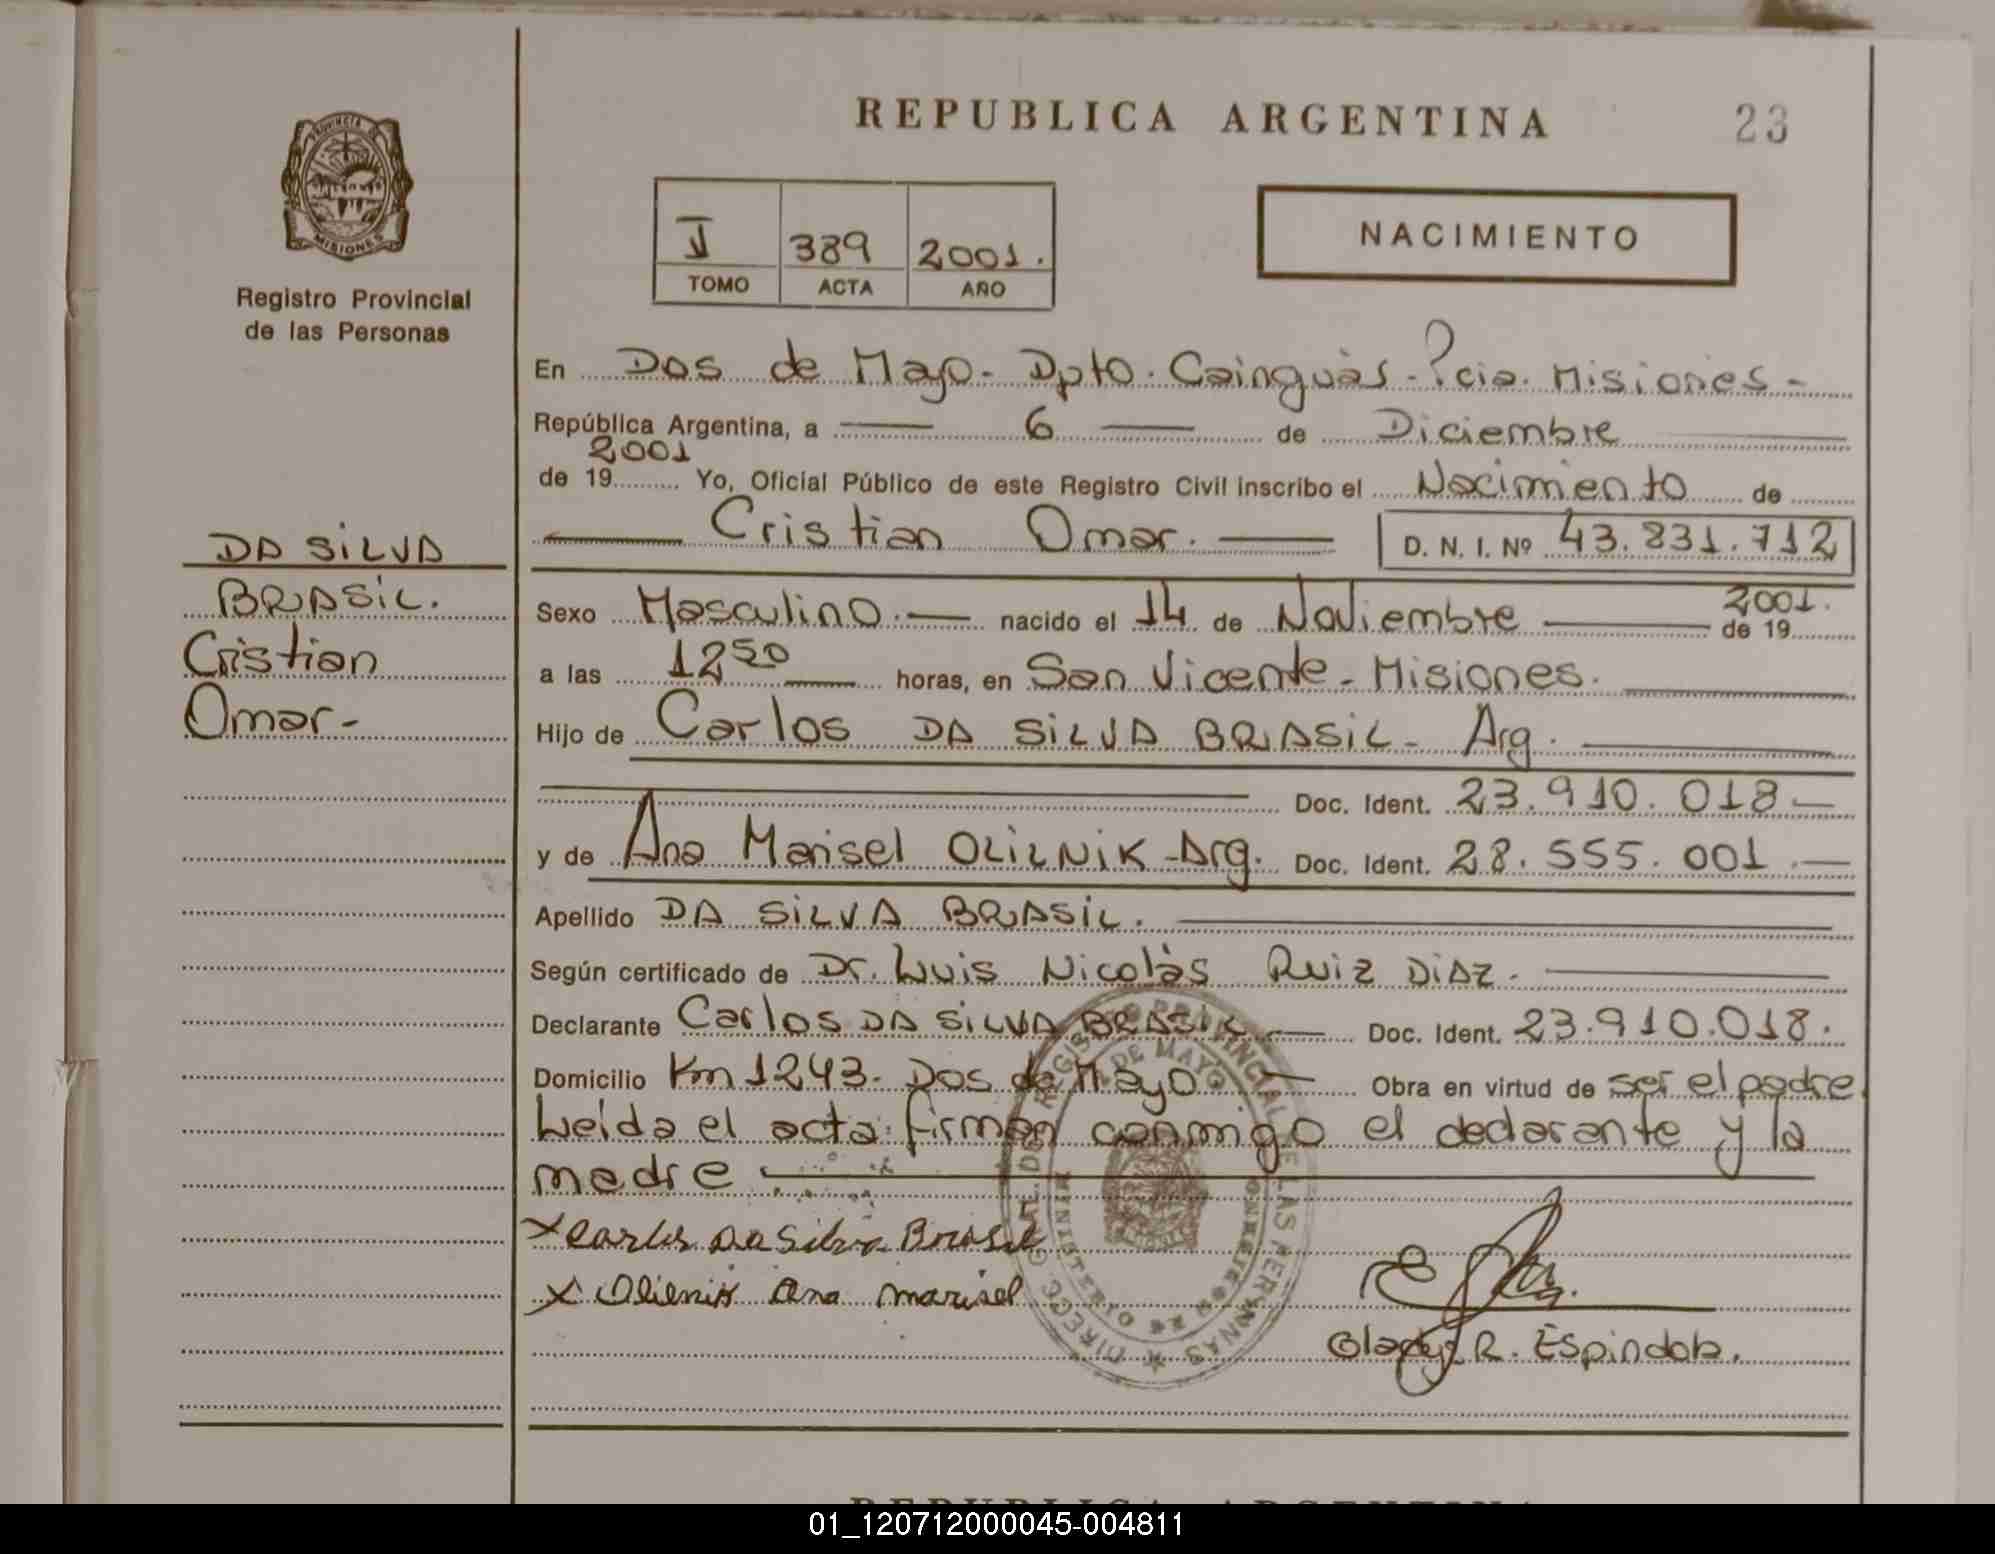 REPUBLICA ARGENTINA
23
PROVINCIA DE
MISIONES
Registro Provincial
de las Personas
I 389 2001.
TOMO ACTA AÑO
NACIMIENTO
En Dos de Mayo- Dpto. Cainguàs- Pcia. Misiones-
República Argentina, a 6 de Diciembre
2001
de 19 Yo, Oficial Público de este Registro Civil inscribo el Nacimiento de
Cristian Omar. D. N. I. Nº 43.831.712
DA SILVA
BRASIL.
Cristian
Omar-
Sexo Masculino.- nacido el 14 de Noviembre 2001. de 19
a las 12 50 horas, en San Vicente- Misiones.
Hijo de Carlos DA SILVA BRASIL- Arg.
Doc. Ident. 23.910.018-
y de Ana Marisel OLILNIK-Arg. Doc. Ident. 28.555.001.-
Apellido DA SILVA BRASIL.
Según certificado de Dr. Luis Nicolàs Ruiz DIAZ.
Declarante Carlos DA SILVA BRASIL- Doc. Ident. 23.910.018.
Domicilio Km 1243. Dos de Mayo Obra en virtud de ser el padre
Leida el acta firman conmigo el declarante y la
madre
x Carlos Da Silva Brasil
x Olienik Ana Marisel
Gladys R. Espindola.
REPUBLICA ARGENTINA
01_120712000045-004811